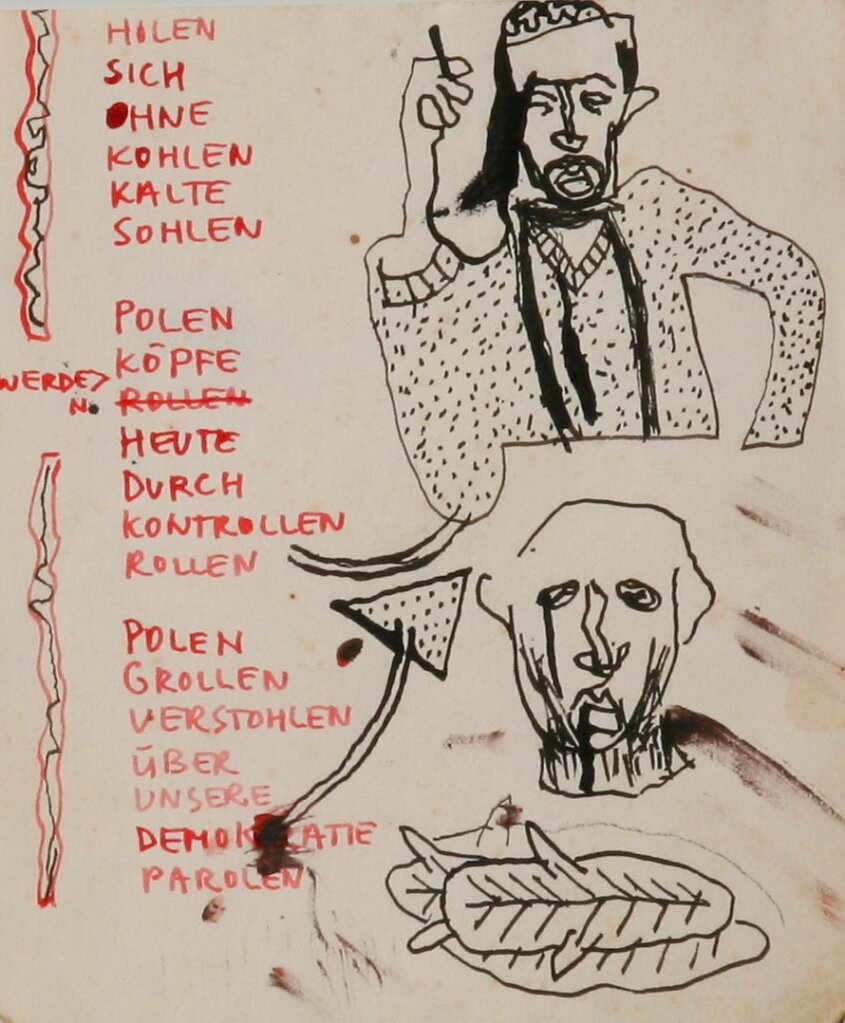 HOLEN
SICH
OHNE
KOHLEN
KALTE
SOHLEN
POLEN
KÖPFE
WERDE>
N. ROLLEN
HEUTE
DURCH
KONTROLLEN
ROLLEN
POLEN
GROLLEN
VERSTOHLEN
ÜBER
UNSERE
DEMOKRATIE
PAROLEN